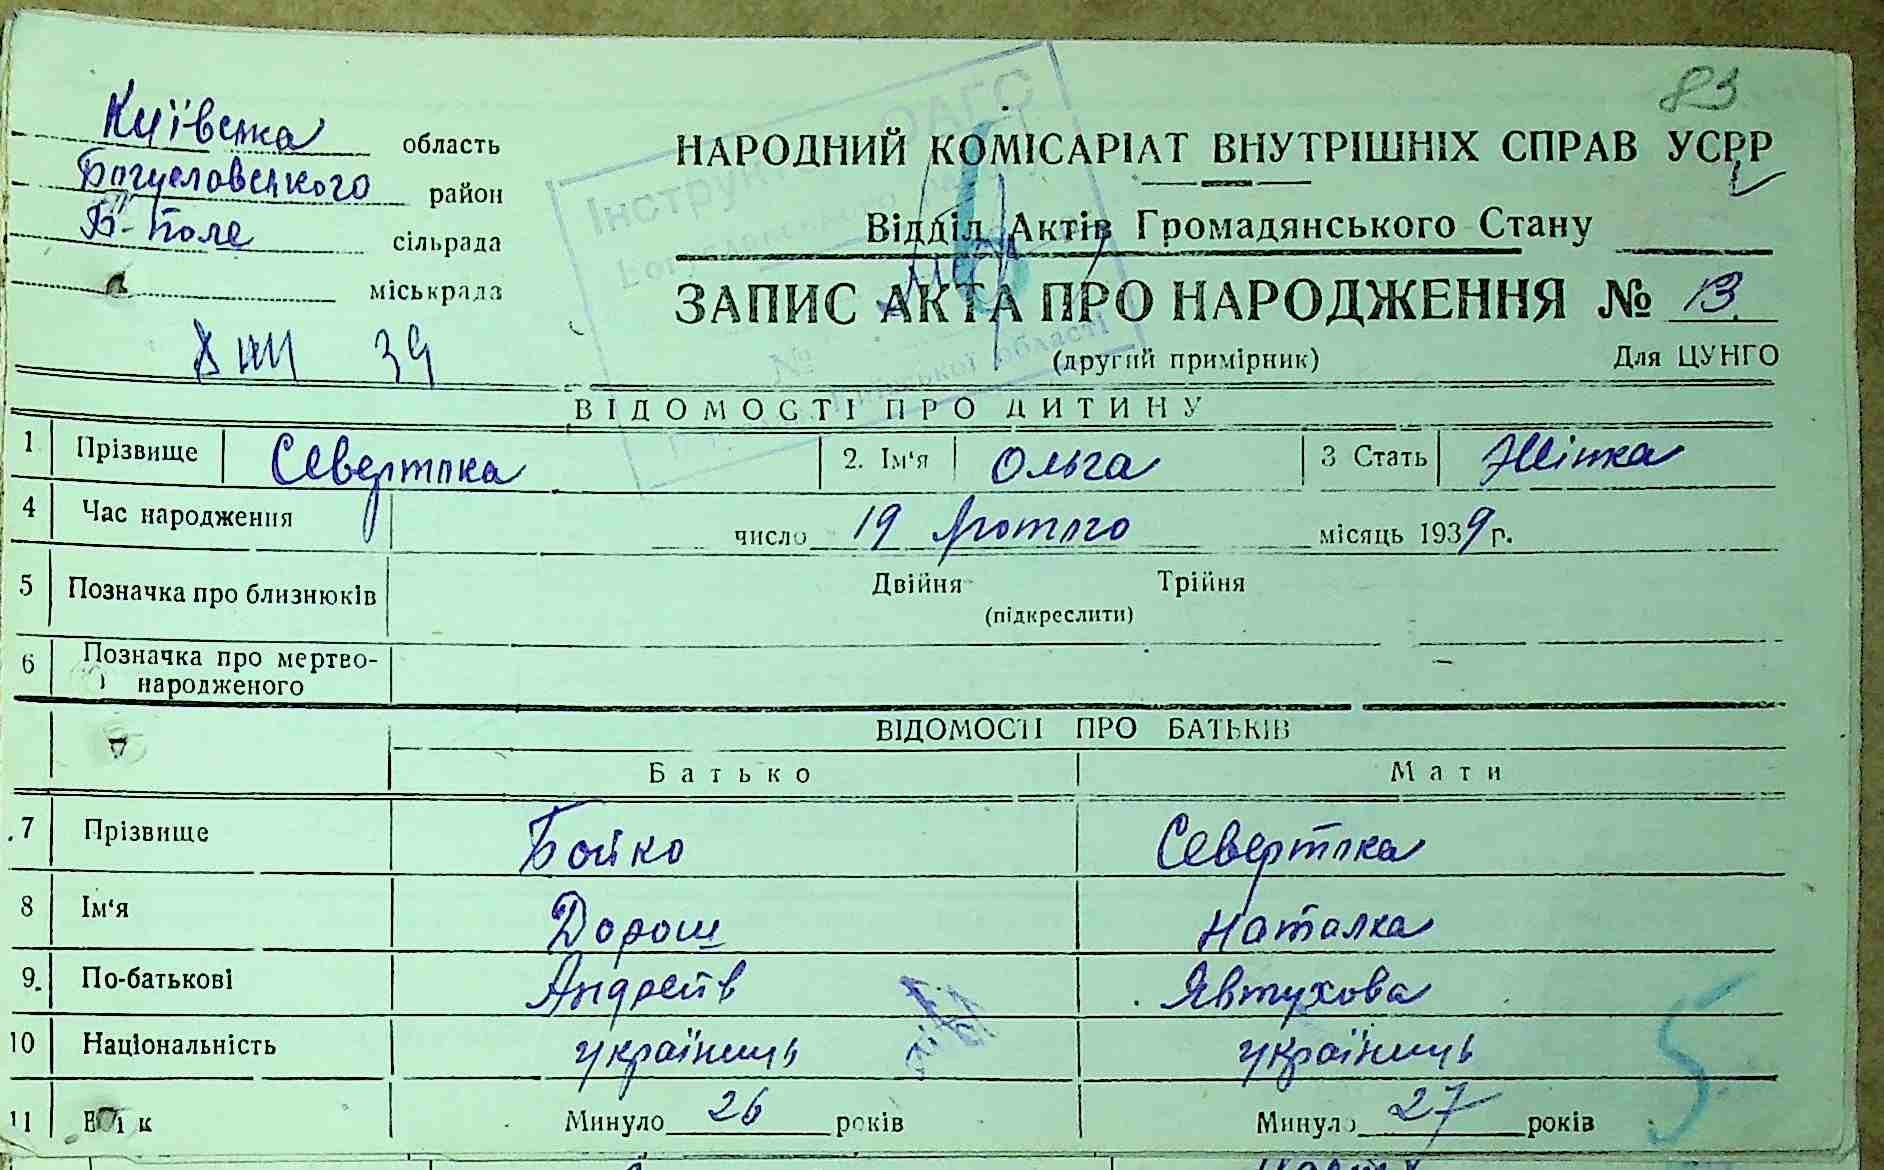 83
Київська область
Богуславського район
Б-Поле сільрада
міськрада
39
НАРОДНИЙ КОМІСАРІАТ ВНУТРІШНІХ СПРАВ УСРР
Відділ Актів Громадянського Стану
ЗАПИС АКТА ПРО НАРОДЖЕННЯ № 13.
(другий примірник) Для ЦУНГО
ВІДОМОСТІ ПРО ДИТИНУ
1 Прізвище Севертока 2. Ім'я Ольга 3 Стать Жінка
4 Час народження число 19 Лютого місяць 1939 г.
5 Позначка про близнюків Двійня Трійня
(підкреслити)
6 Позначка про мертво-
народженого
ВІДОМОСТІ ПРО БАТЬКІВ
Батько Мати
7 Прізвище Бойко Севертока
8 Ім'я Дорош Наталка
9. По-батькові Андреїв Явтухова
10 Національність українць українць
11 Вік Минуло 26 років Минуло 27 років
5